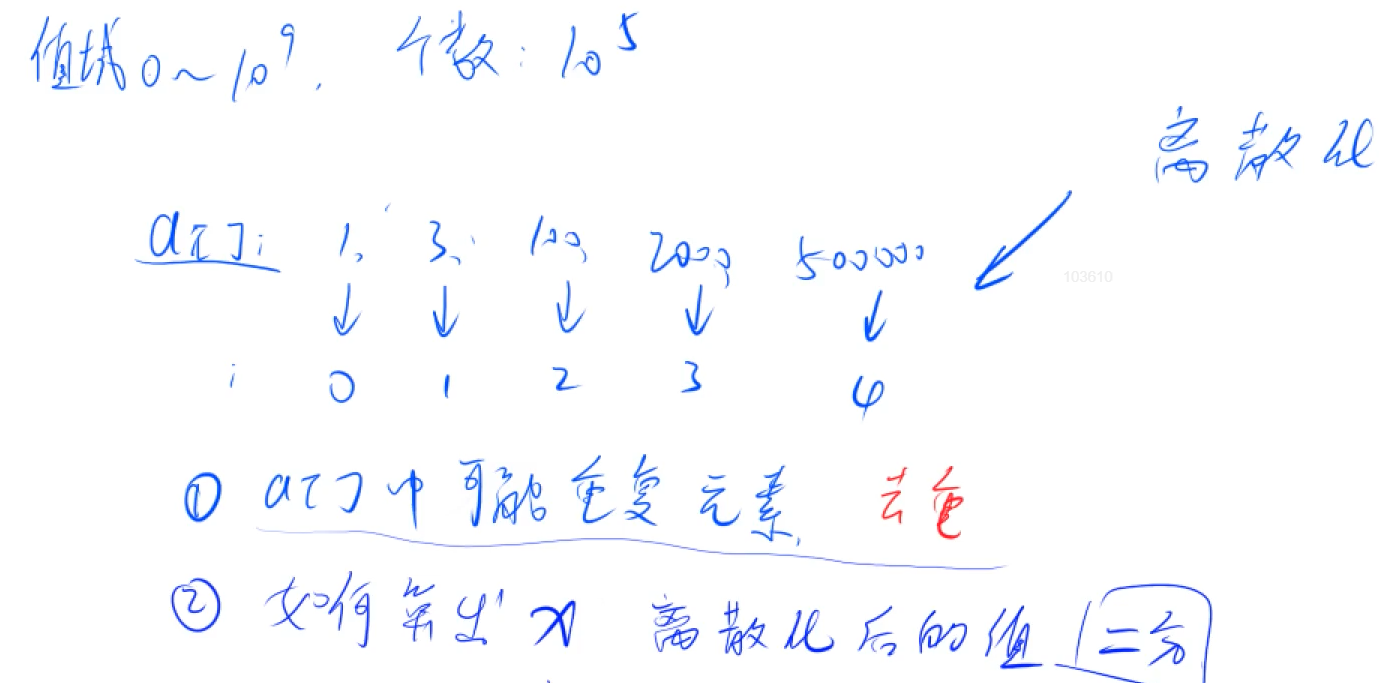 值域 0~10⁹, 个数: 10⁵
离散化
a[]: 1, 3, 100, 2000, 500000
103610
i 0 1 2 3 4
① a[] 中可能重复元素, 去重
② 如何算出 x 离散化后的值 二分